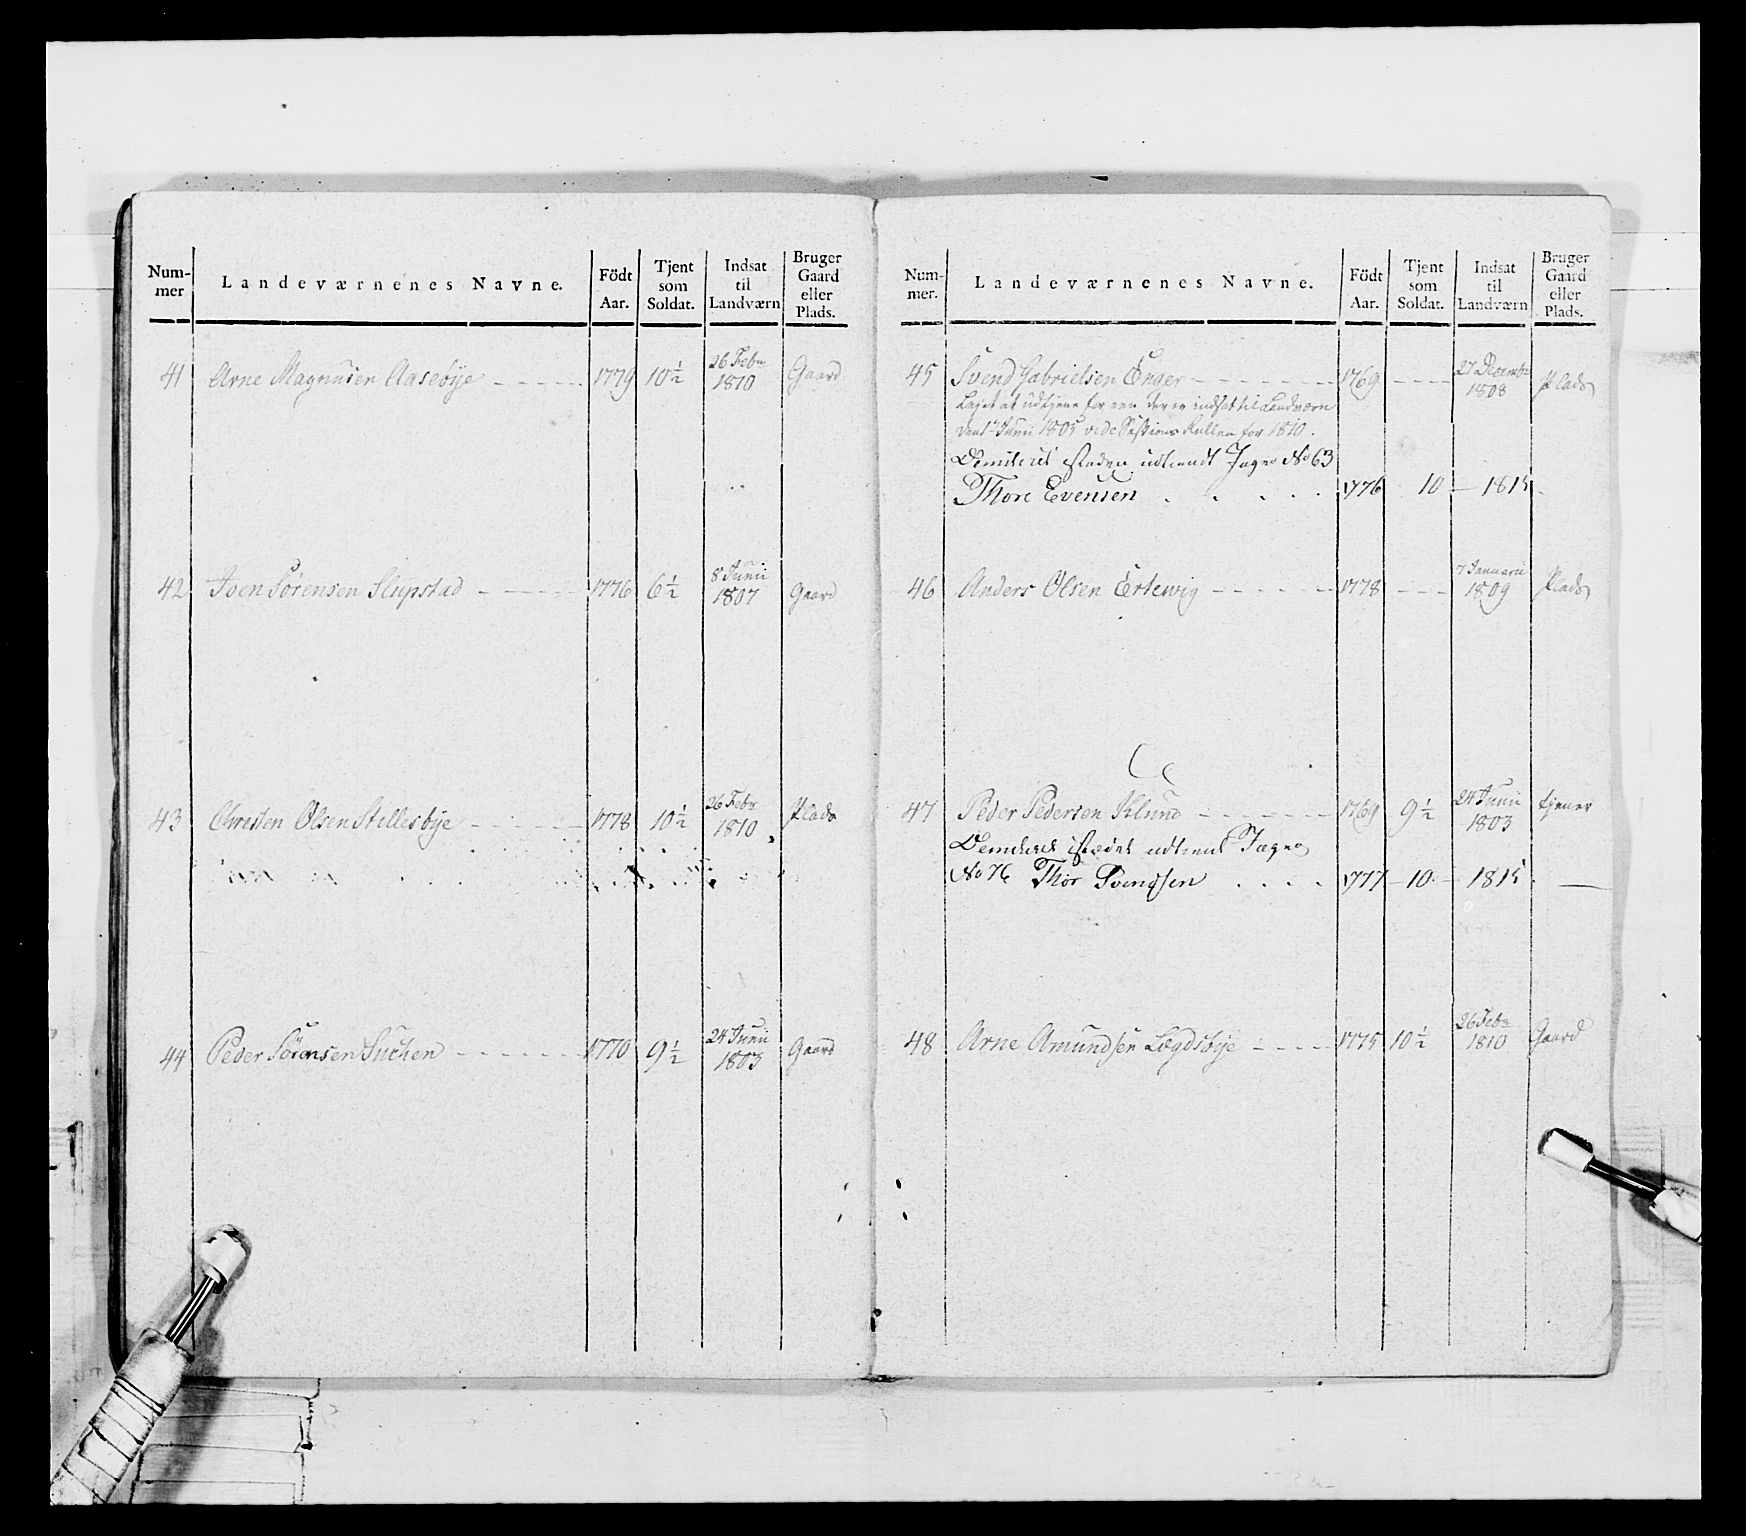 Num-
mer
Landeværnenes Navne.
Födt
Aar.
Tjent
som
Soldat.
Indsat
til
Landværn
Bruger
Gaard
eller
Plads.
41 Arne Magnusen Aasebye - - - - - 1779 10 1/2 26 Febr 1810 Gaard
42 Joen Sørensen Slupstad - - - - - 1776 6 1/2 8 Junii 1807 Gaard
43 Christen Olsen Stillesbye - - - - - 1778 10 1/2 26 Febr 1810 Plads
44 Peder Sörensen Suchen - - - - - - 1770 9 1/2 24 Junii 1803 Gaard
Num-
mer.
Landeværnenes Navne.
Födt
Aar.
Tjent
som
Soldat.
Indsat
til
Landværn
Bruger
Gaard
eller
Plads.
45 Svend Gabrielsen Enger - - - - - - - 1769 - - - - 27 Decembr 1808 Plads
Lejet at udtjene for een der er indsat til Landværn
den 1 Junii 1805 vide Sessions Rullen for 1810.
udtiendt Jæger No 63
Thore Evensen . . . . . 1776 10 - 1815.
46 Anders Olsen Ertewig - - - - - - 1778 - - - 7 Januarii 1809 Plads
47 Peder Pedersen Klund - - - - - - 1769 9 1/2 24 Junii 1803 tjener
istædet udtient Jæger
No 76 Thor Svendsen . . . . 1777 - 10 - 1815. —
48 Arne Amundsen Lægdsbye - - - - 1775 10 1/2 26 Febr 1810 Gaard